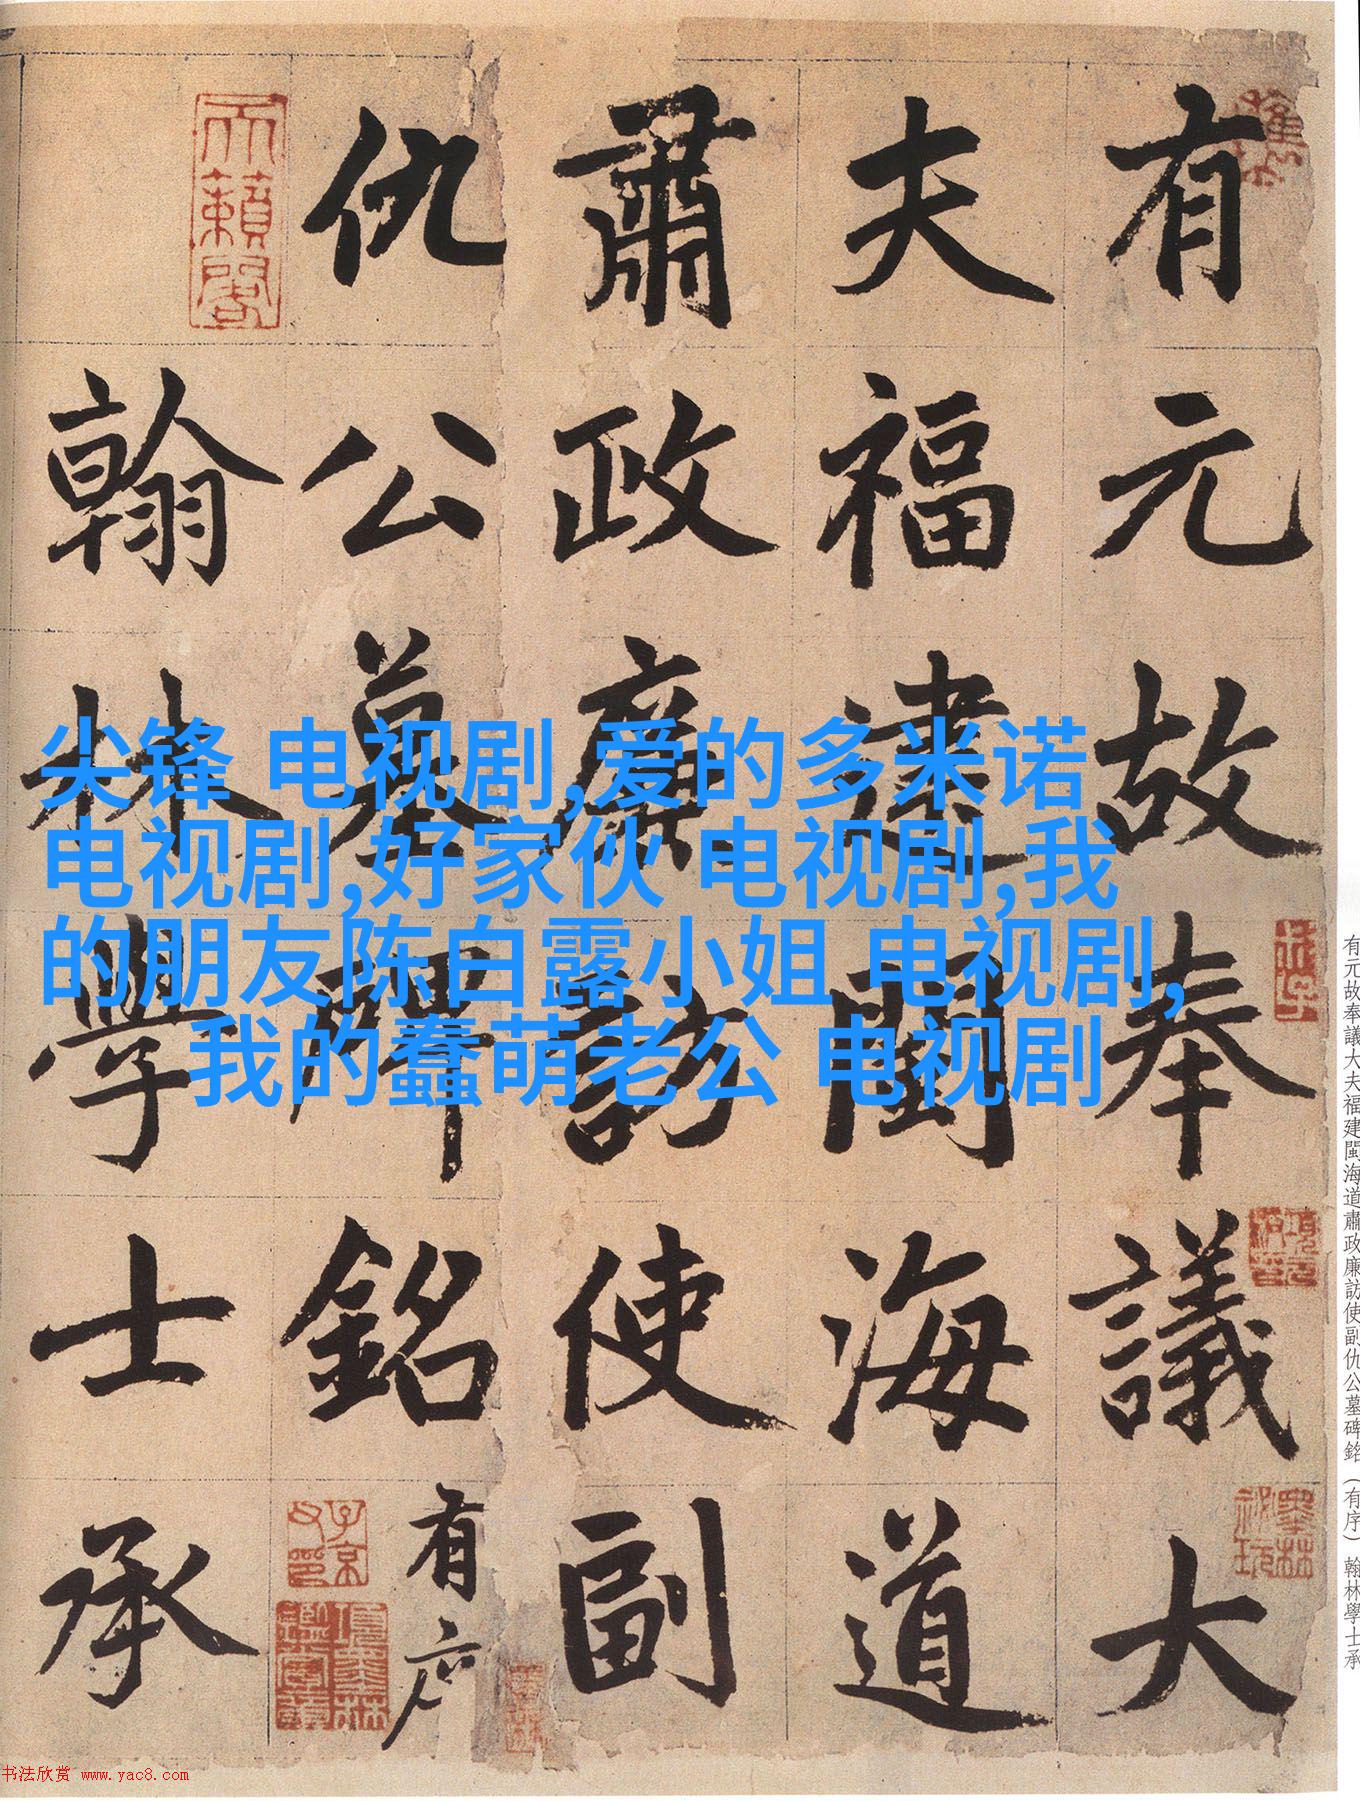 有元故奉議大
夫福建閩海道
肅政廉訪使副
仇公墓碑銘有序
翰林學士承
尖锋 电视剧,爱的多米诺
电视剧,好家伙 电视剧,我
的朋友陈白露小姐 电视剧,
我的蠢萌老公 电视剧
天籟閣
子京父印
有元故奉議大夫福建閩海道肅政廉訪使副仇公墓碑銘(有序) 翰林學士承
书法欣赏 www.yac8.com